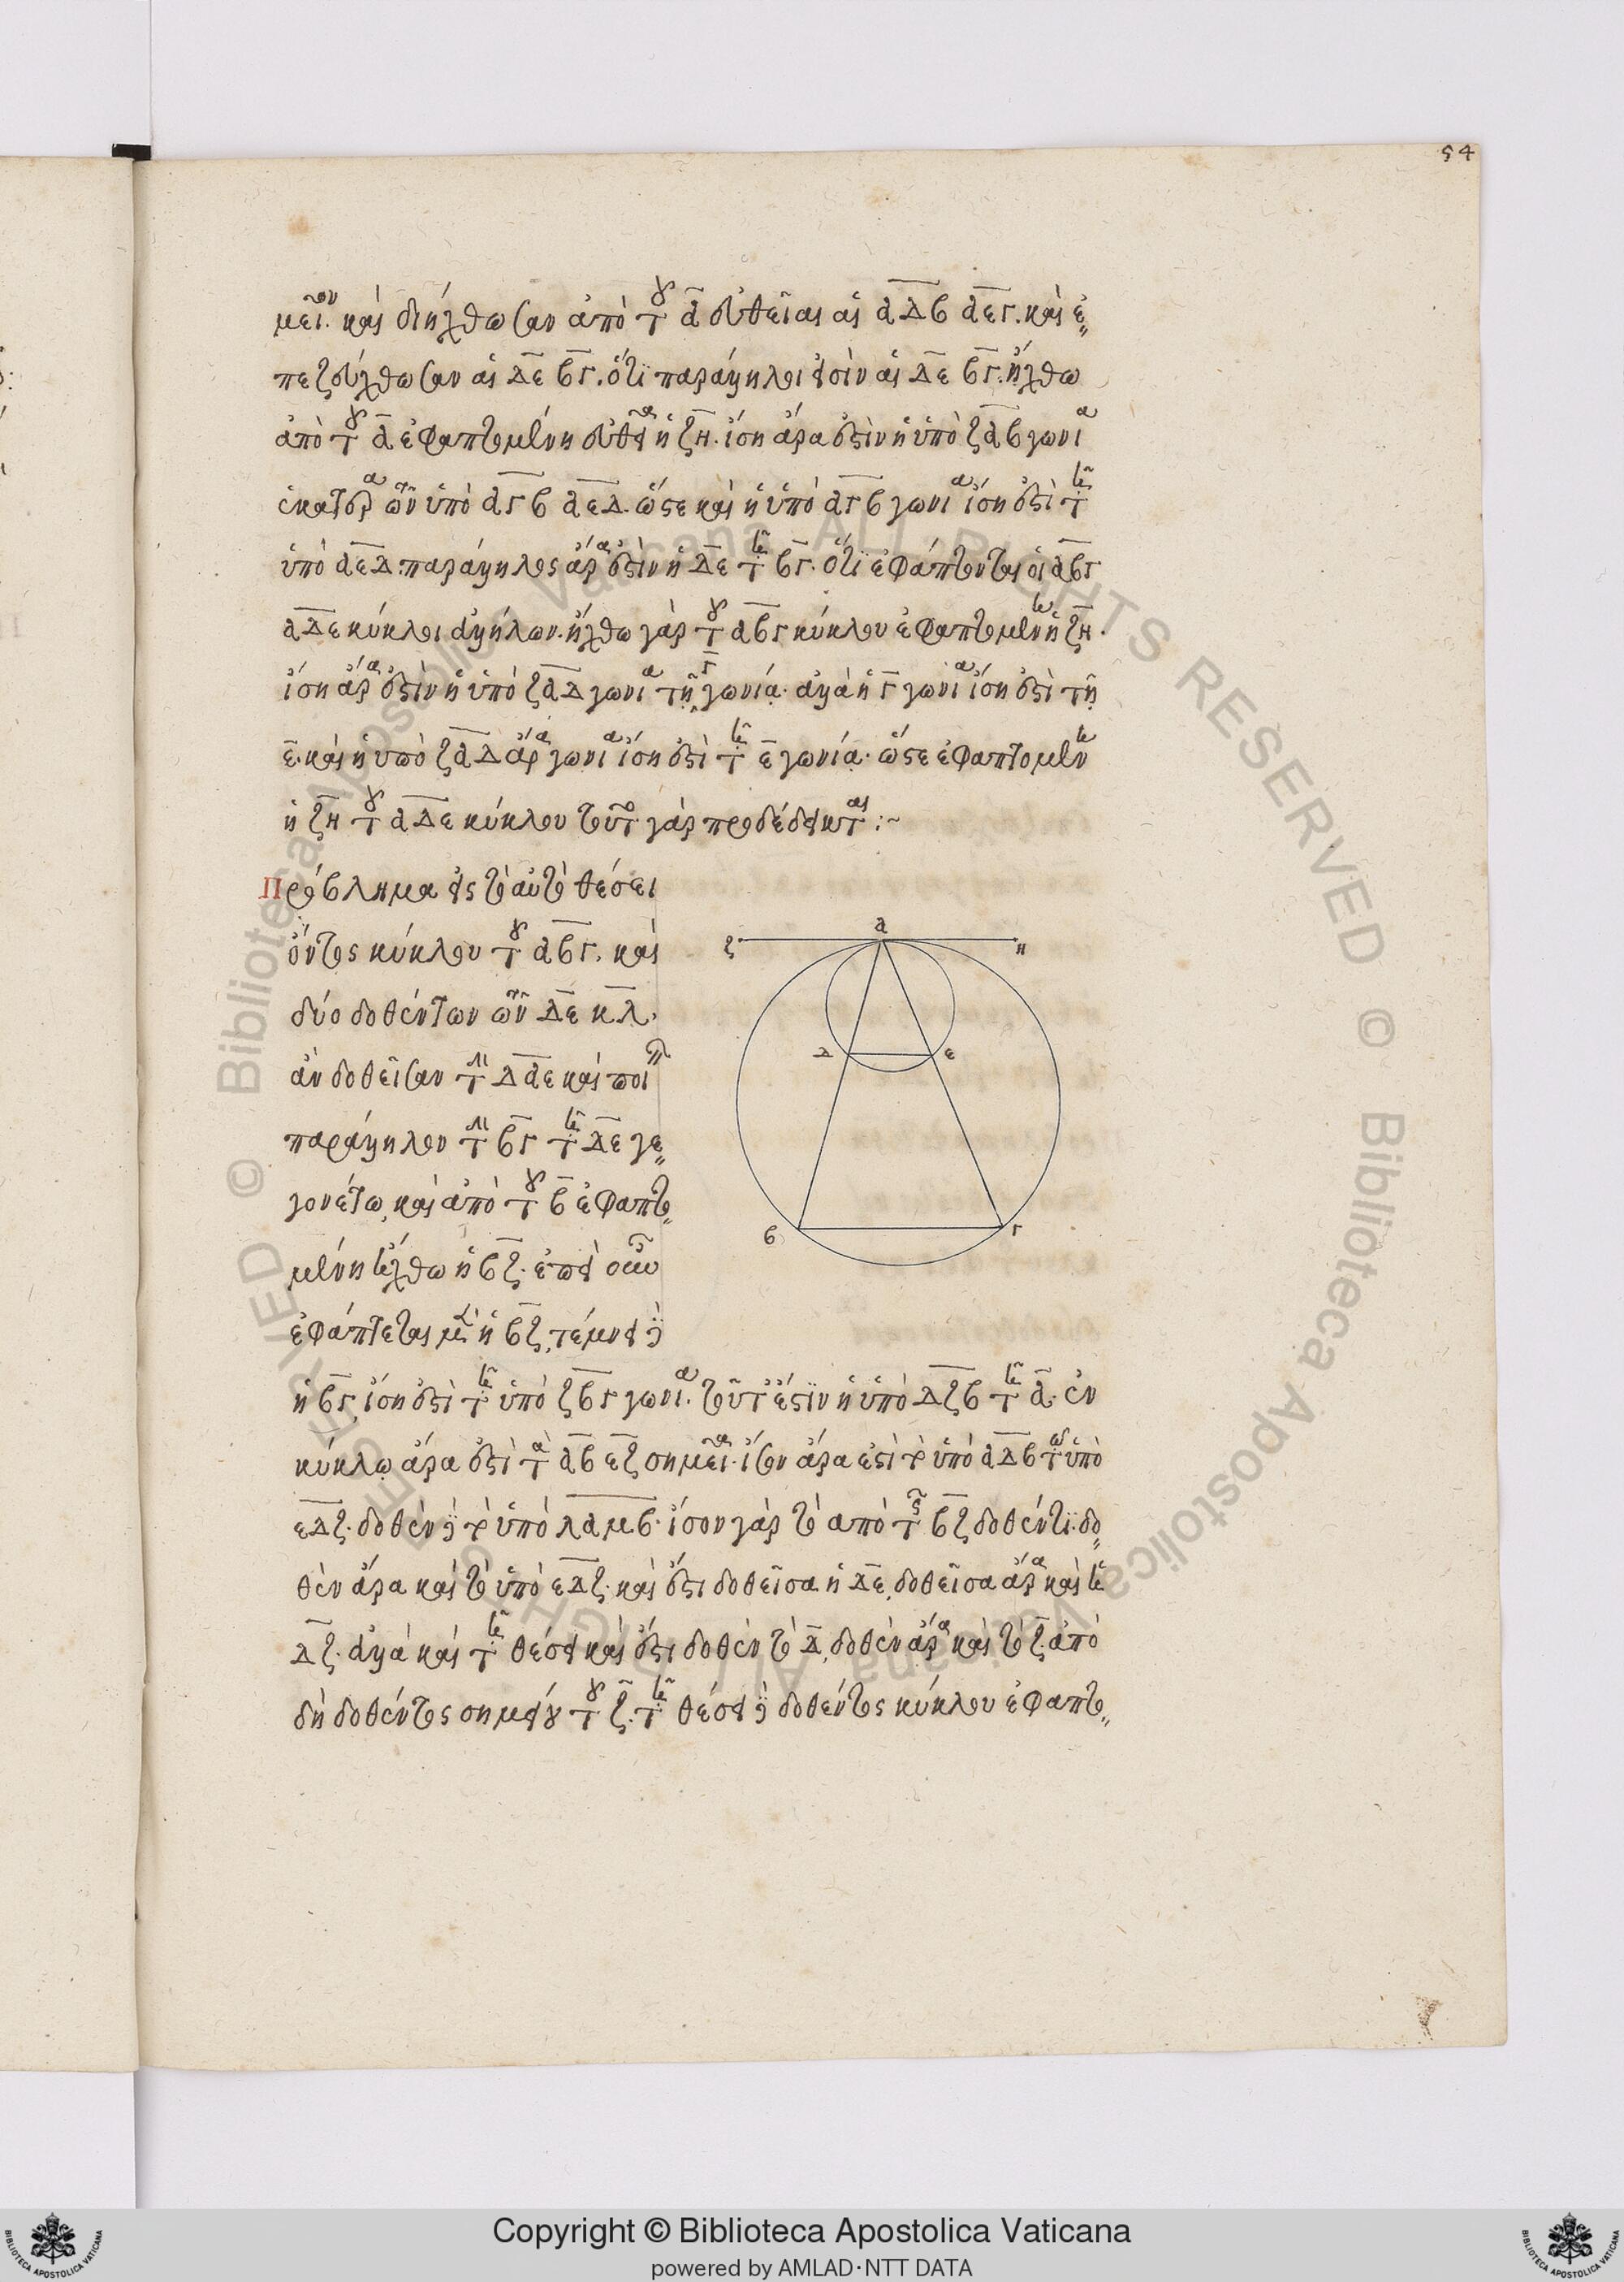 54
μεῖον. καὶ διήχθωσαν ἀπὸ τοῦ α εὐθεῖαι αἱ αΔβ αεγ. καὶ ἐ
πεζεύχθωσαν αἱ Δε βγ. ὅτι παράλληλοι εἰσὶν αἱ Δε βγ. ἤχθω
ἀπὸ τοῦ α ἐφαπτομένη εὐθεῖα ἡ ζη. ἴση ἄρα ἐστὶν ἡ ὑπὸ ζαβ γωνία
ἑκατέρα τῶν ὑπὸ αγβ αεΔ. ὥστε καὶ ἡ ὑπὸ αγβ γωνία ἴση ἐστὶ τῆ
ὑπὸ αεΔ. παράλληλος ἄρα ἐστὶν ἡ Δε τῆ βγ. ὅτι ἐφάπτονται οἱ αβγ
αΔε κύκλοι ἀλλήλων. ἤχθω γὰρ τοῦ αβγ κύκλου ἐφαπτομένη ἡ ζη.
ἴση ἄρα ἐστὶν ἡ ὑπὸ ζαΔ γωνία τῇ γ γωνίᾳ. ἀλλὰ ἡ γ γωνία ἴση ἐστὶ τῇ
ε. καὶ ἡ ὑπὸ ζαΔ ἄρα γωνία ἴση ἐστὶ τῆ ε γωνίᾳ. ὥστε ἐφαπτομένη
ἡ ζη τοῦ αΔε κύκλου τοῦτο γὰρ προδέδεικται :~
Πρόβλημα εἰς τὸ αὐτὸ θέσει
ὄντος κύκλου τοῦ αβγ. καὶ
δύο δοθέντων τῶν Δε κλ.
ἀν δοθεῖσαν τὴν Δαε καὶ ποιεῖν
παράλληλον τὴν βγ τῆ Δε γε
γονέτω, καὶ ἀπὸ τοῦ β ἐφαπτο
μένη ἤχθω ἡ βζ. ἐπεὶ οὖν
ἐφάπτεται μὲν ἡ βζ, τέμνει δὲ
ἡ βγ, ἴση ἐστὶ τῆ ὑπὸ ζβγ γωνία. τοῦτ' ἔστιν ἡ ὑπὸ Δζβ τῆ α. ἐν
κύκλῳ ἄρα ἐστὶ τὰ αβ εζ σημεῖα. ἴσον ἄρα ἐστὶ τὸ ὑπὸ αΔβ τῶ ὑπὸ
εΔζ. δοθὲν δὲ τὸ ὑπὸ λαμβ. ἴσον γὰρ τὸ ἀπὸ τῆς βζ δοθέντι. δο
θὲν ἄρα καὶ τὸ ὑπὸ εΔζ. καὶ ἔστι δοθεῖσα ἡ Δε, δοθεῖσα ἄρα καὶ ἡ
Δζ. ἀλλὰ καὶ τῆ θέσει καὶ ἔστι δοθὲν τὸ Δ, δοθὲν ἄρα καὶ τὸ ζ. ἀπὸ
δὴ δοθέντος σημείου τοῦ ζ. τῆ θέσει δὲ δοθέντος κύκλου ἐφαπτο
α
ζ η
Δ ε
β γ
© Biblioteca Apostolica Vaticana ALL RIGHTS RESERVED
© Biblioteca Apostolica Vaticana ALL RIGHTS RESERVED
Copyright © Biblioteca Apostolica Vaticana
powered by AMLAD·NTT DATA
BIBLIOTECA APOSTOLICA VATICANA
BIBLIOTECA APOSTOLICA VATICANA